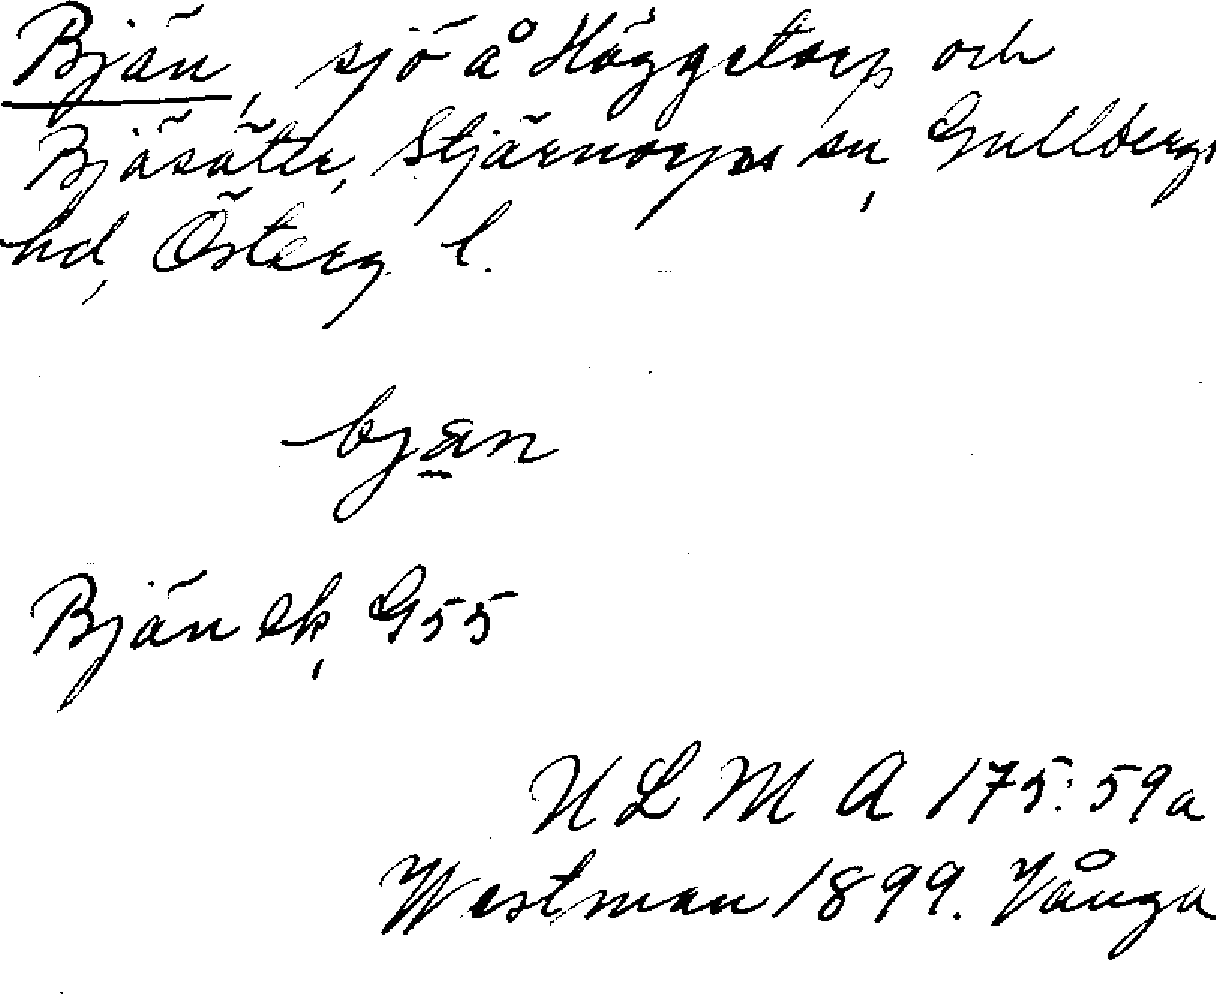 Bjän, sjö å Häggetorp och
Bjäsäter, Stjärnorps sn, Gullbergs
hd, Österg. l.
bjän
Bjän ek, G55
ULMA 175:59a
Westman 1899. Vånga